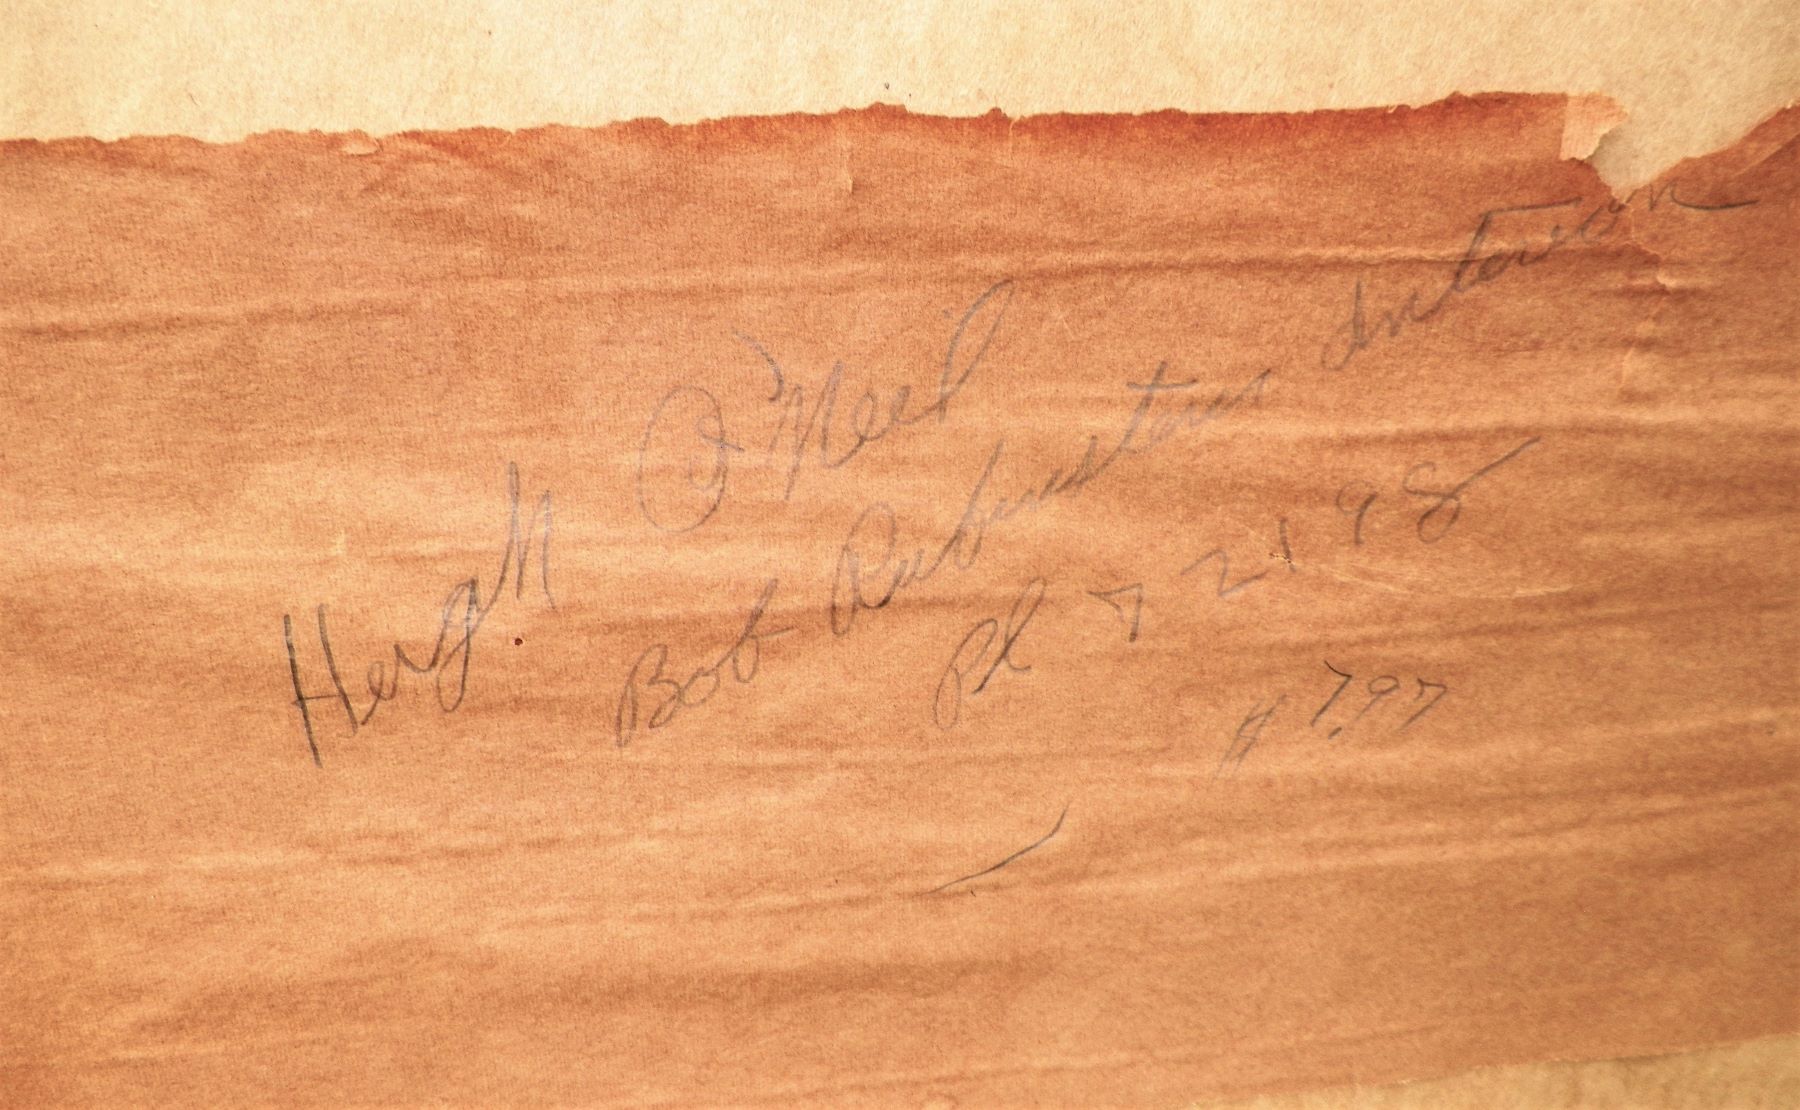 Hergh O'Neil
Bob Rubusteun Intereon
Pl 7 2198
# 7.97